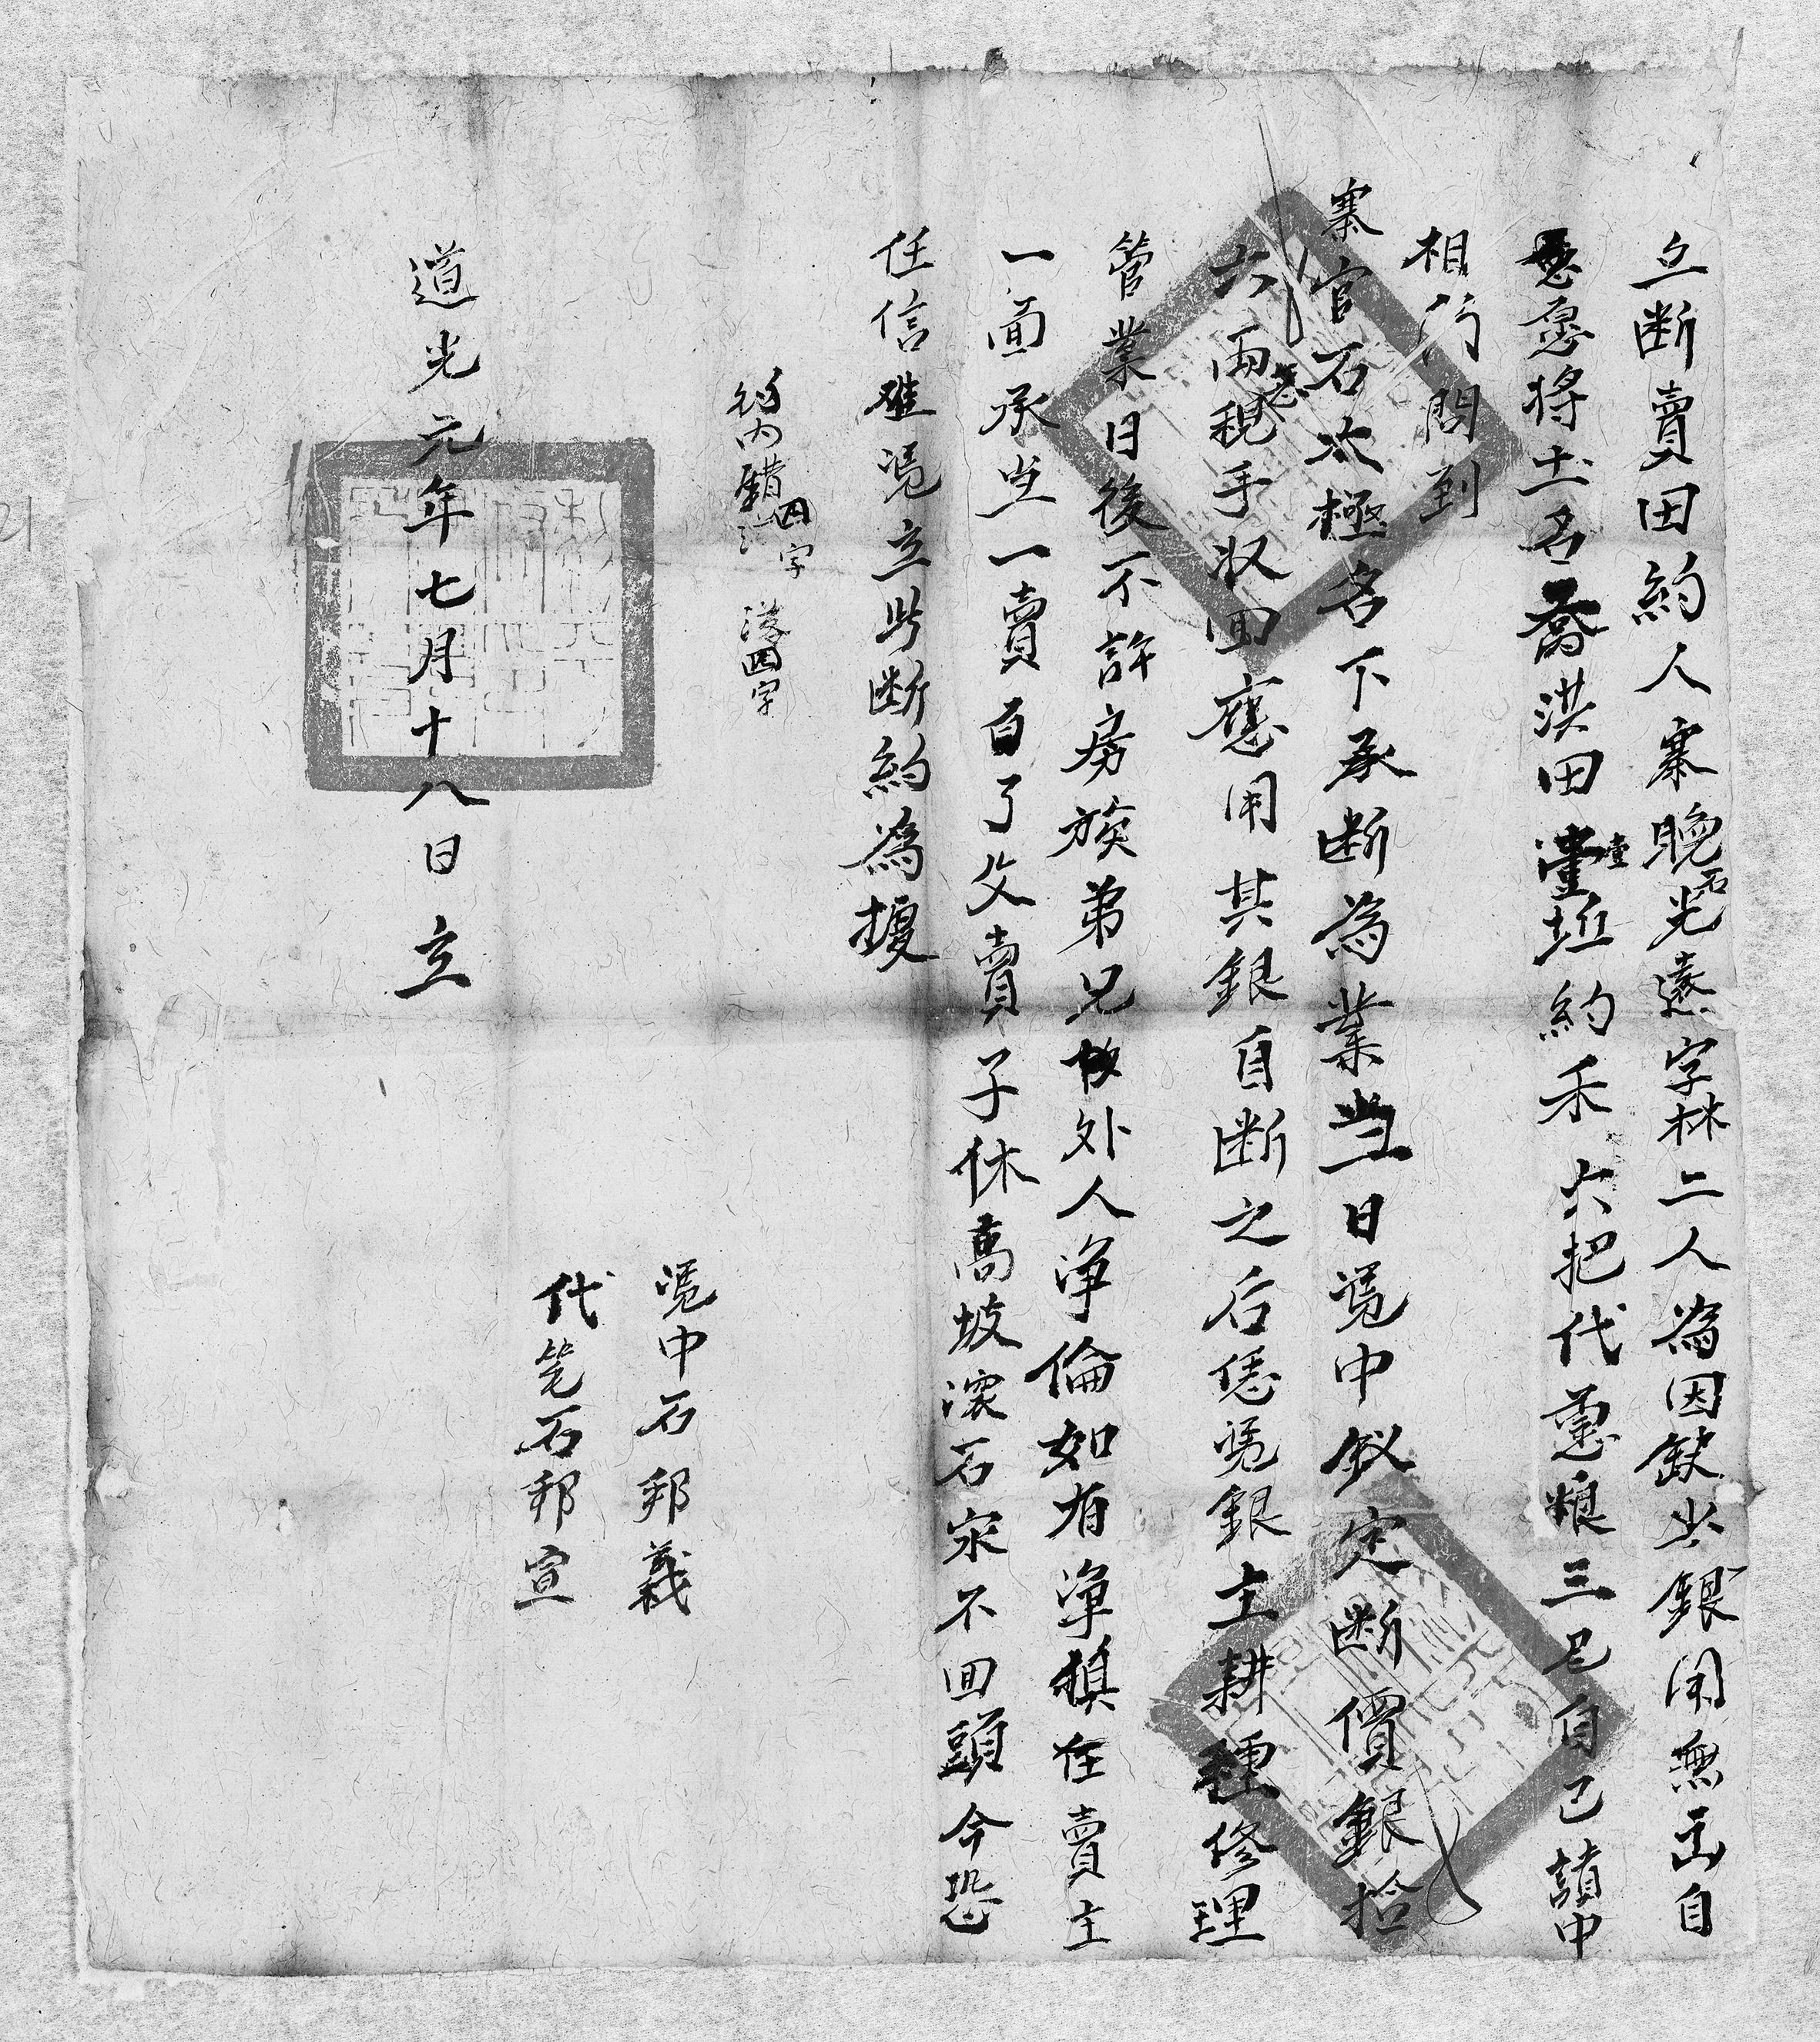 立断賣田約人寨晚石光遠字林二人為因缺少銀用無出自
愿將土名喬洪田壹坵約禾六把代原粮三
相污問到
寨官石太極名下承断為業當日凴中
定断價銀拾
六両親手收回應用其銀自断之后凴銀主耕種修理
管業日後不許房族弟兄外人净倫如有净在賣主
一面承当一賣百了父賣子休高坡滚石永不回頭今恐
任信难凴立此断約為據
約内錯四字 添四字
凴中石邦義
代筆石邦宣
道光元年七月十八日立